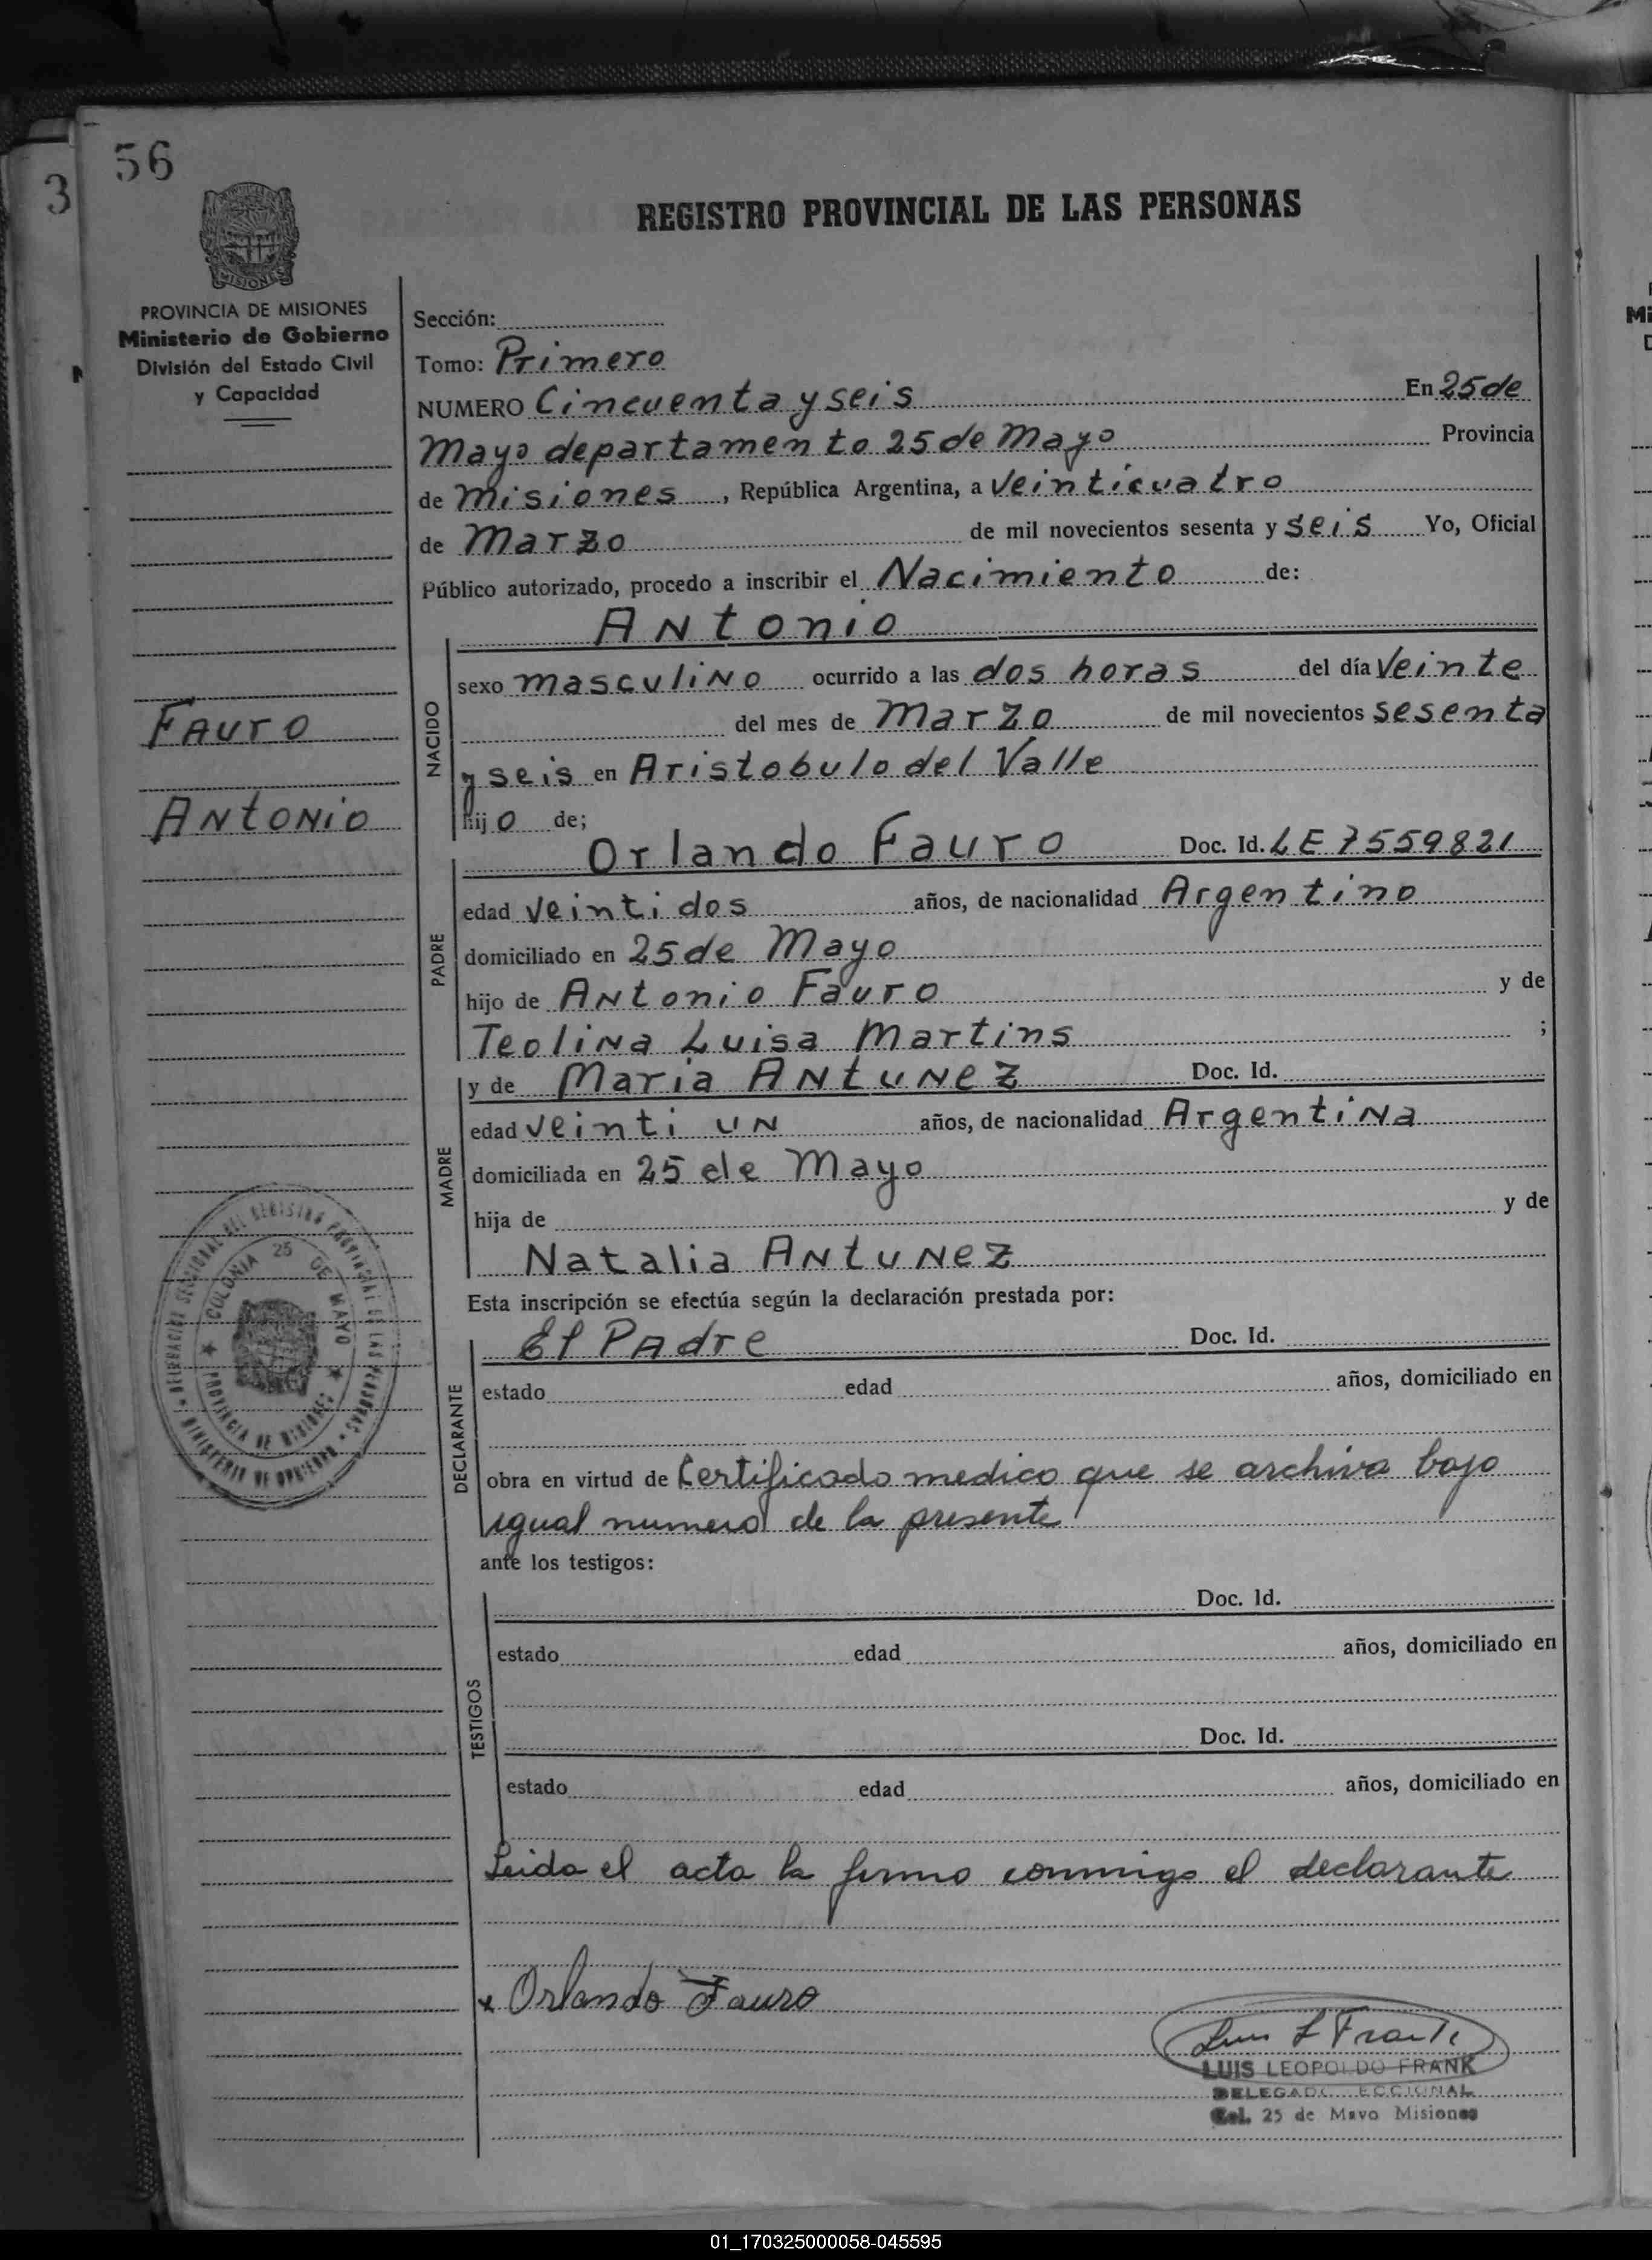 56
3
REGISTRO PROVINCIAL DE LAS PERSONAS
MISIONES
PROVINCIA DE MISIONES
Ministerio de Gobierno
División del Estado Civil
y Capacidad
Sección:
Tomo: Primero
NUMERO Cincuenta y seis En 25 de
Mayo departamento 25 de Mayo Provincia
de Misiones, República Argentina, a Veinticuatro
de Marzo de mil novecientos sesenta y seis Yo, Oficial
Público autorizado, procedo a inscribir el Nacimiento de:
Antonio
NACIDO
sexo masculino ocurrido a las dos horas del día Veinte
del mes de Marzo de mil novecientos sesenta
y seis en Aristobulo del Valle
hijo de;
Fauro
Antonio
PADRE
Orlando Fauro Doc. Id. LE 7559821
edad Veinti dos años, de nacionalidad Argentino
domiciliado en 25 de Mayo
hijo de Antonio Fauro y de
Teolina Luisa Martins ;
MADRE
y de Maria Antunez Doc. Id.
edad Veinti un años, de nacionalidad Argentina
domiciliada en 25 de Mayo
hija de y de
Natalia Antunez
Esta inscripción se efectúa según la declaración prestada por:
DECLARANTE
El Padre Doc. Id.
estado edad años, domiciliado en
obra en virtud de Certificado medico que se archiva bajo
igual numero de la presente
ante los testigos:
TESTIGOS
Doc. Id.
estado edad años, domiciliado en
Doc. Id.
estado edad años, domiciliado en
Leida el acta la firma conmigo el declarante
x Orlando Fauro
DELEGACION SECCIONAL DEL REGISTRO PROVINCIAL DE LAS PERSONAS
MINISTERIO DE GOBIERNO
COLONIA 25 DE MAYO
PROVINCIA DE MISIONES
Luis L Frank
LUIS LEOPOLDO FRANK
DELEGADO SECCIONAL
Col. 25 de Mayo Misiones
01_170325000058-045595